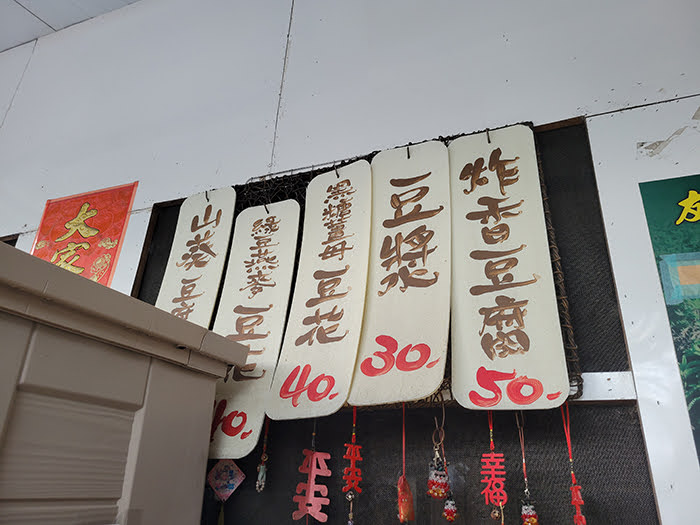 炸香豆腐
50.-
豆漿
30.-
黑糖薑母豆花
40.-
綠豆燕麥豆花
40.-
山葵豆腐
大
平安
平安
幸福
友